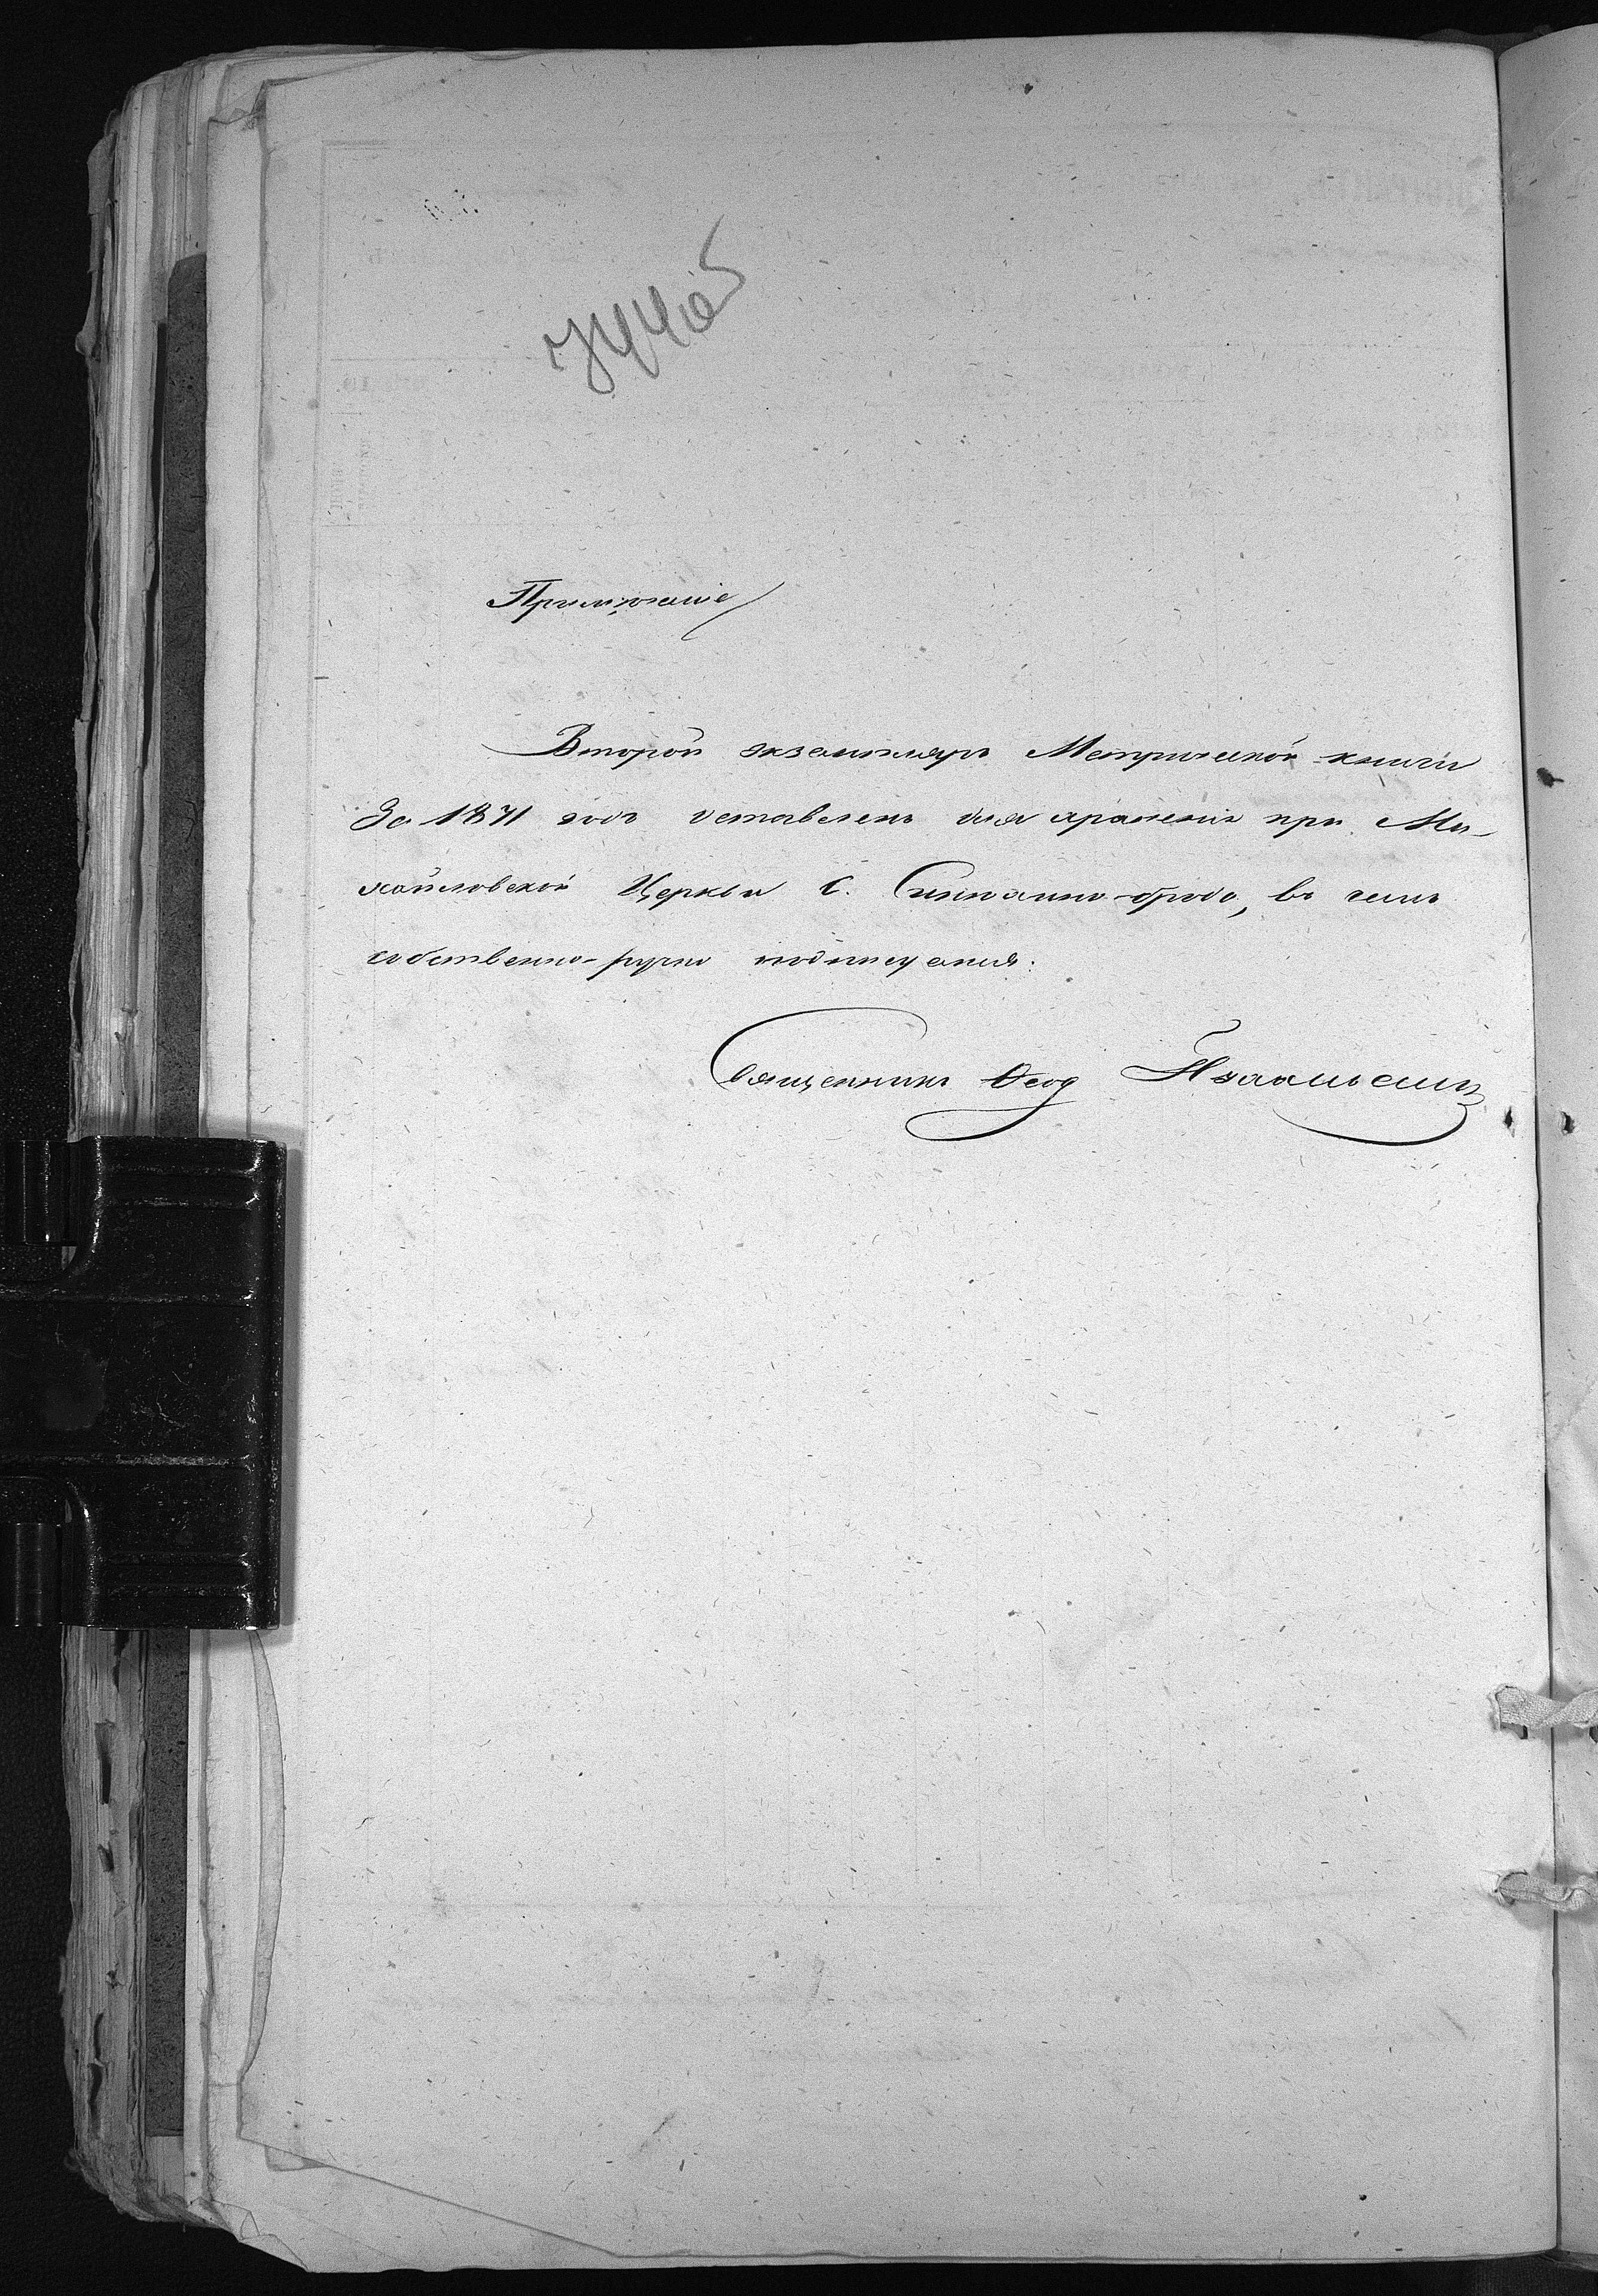 Примѣчаніе
Второй экземпляръ Метрической книги
За 1871 годъ оставленъ для храненія при Ми-
хайловской Церкви С. броде, въ чемъ
собственно-ручно подписуемся:
Священникъ Ѳеод